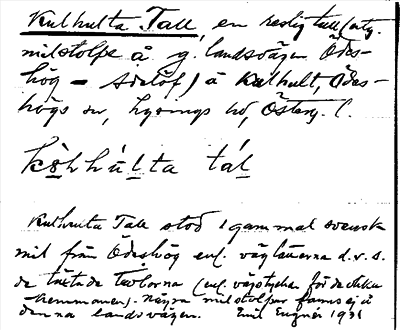 Kulhulta Tall, en reslig tall (utg.
milstolpe å g. landsvägen Ödes-
hög - Adelöf) å Kulhult, Ödes-
högs sn, Lysings hd, Österg. l.
kòhhú̀lta tál
Kulhulta Tall stod 1 gammal svensk
mil från Ödeshög enl. vägtavlorna d.v.s.
de tätade tavlorna (enl. vägstycken för de olika
hemmanen). Några milstolpar fanns ej å
denna landsvägen. Emil Eugnér 1931